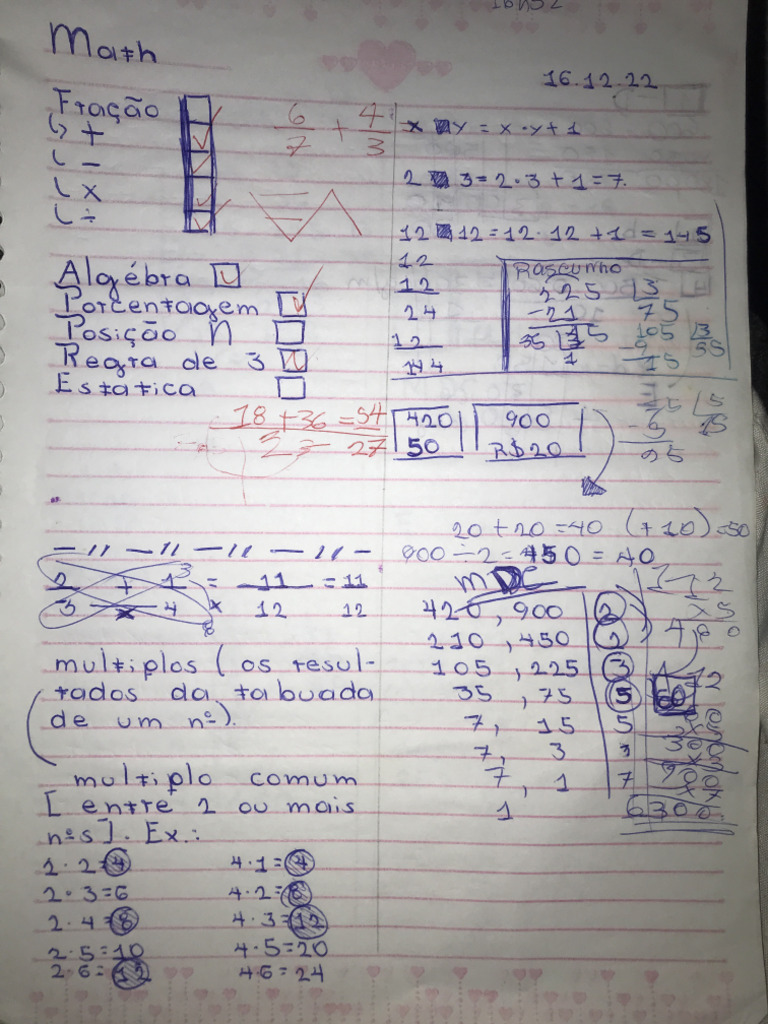 Math
16.12.22
Fração
↳ +
-
x
÷
6/7 + 4/3
Algébra
Porcentagem
Posição N
Regra de 3
Estatica
18 + 36 = 54
27
x ■ y = x · y + 1
2 ■ 3 = 2 · 3 + 1 = 7.
12 ■ 12 = 12 · 12 + 1 = 145
12
12
24
12
144
Rascunho
225 3
-21 75
15
105 3
420 900
50 R$20
20 + 20 = 40 (+10) = 50
900 ÷ 2 = 450 = 40
MDC
420, 900 2
210, 450 2
105, 225 3
35, 75 5
7, 15 5
7, 3 3
7, 1 7
1 6300
2/3 + 1/4 = 11/12 = 11/12
multiplos (os resul-
tados da tabuada
de um nº).
multiplo comum
[entre 2 ou mais
nºs]. Ex.:
2·2=4 4·1=4
2·3=6 4·2=8
2·4=8 4·3=12
2·5=10 4·5=20
2·6=12 4·6=24